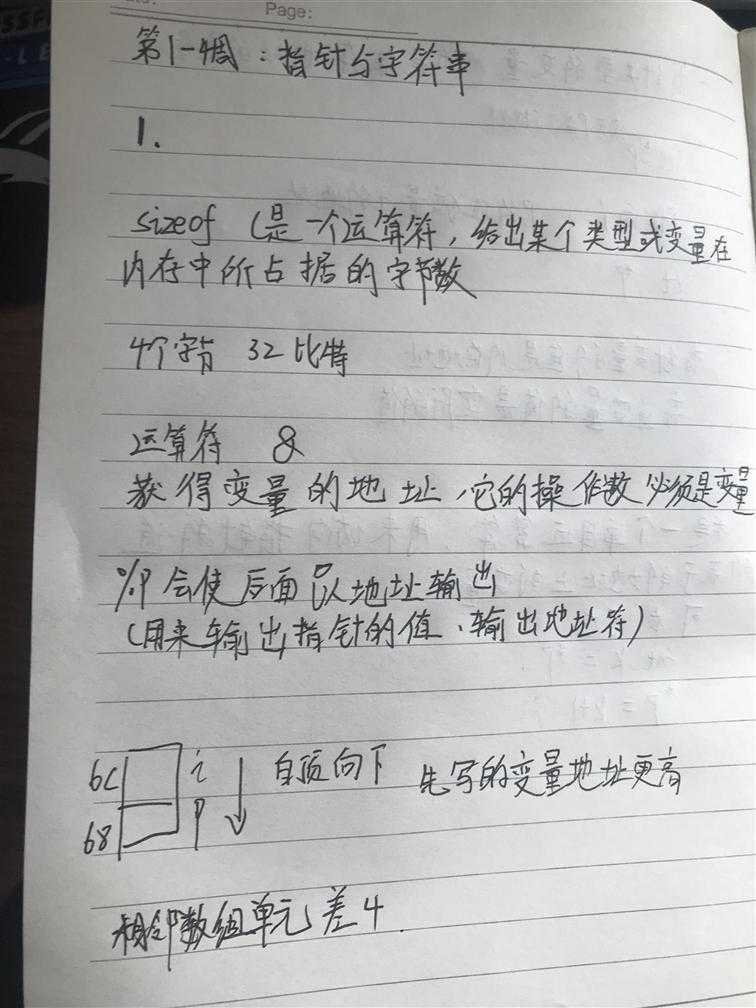 Page:
第1-4周：指针与字符串
1.
sizeof (是一个运算符，给出某个类型或变量在
内存中所占据的字节数
4个字节 32比特
运算符 &
获得变量的地址，它的操作数必须是变量
%P 会使后面以地址输出
(用来输出指针的值、输出地址符)
6C i 自顶向下 先写的变量地址更高
68 p
相邻数组单元差4.